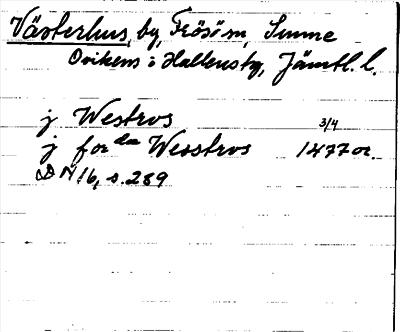 Västerhus, by, Frösö sn, Sunne
Ovikens o Hallens tg, Jämtl. l.
j Westros
3/4
j for de Wesstros 1477 or.
DN 16, s. 289